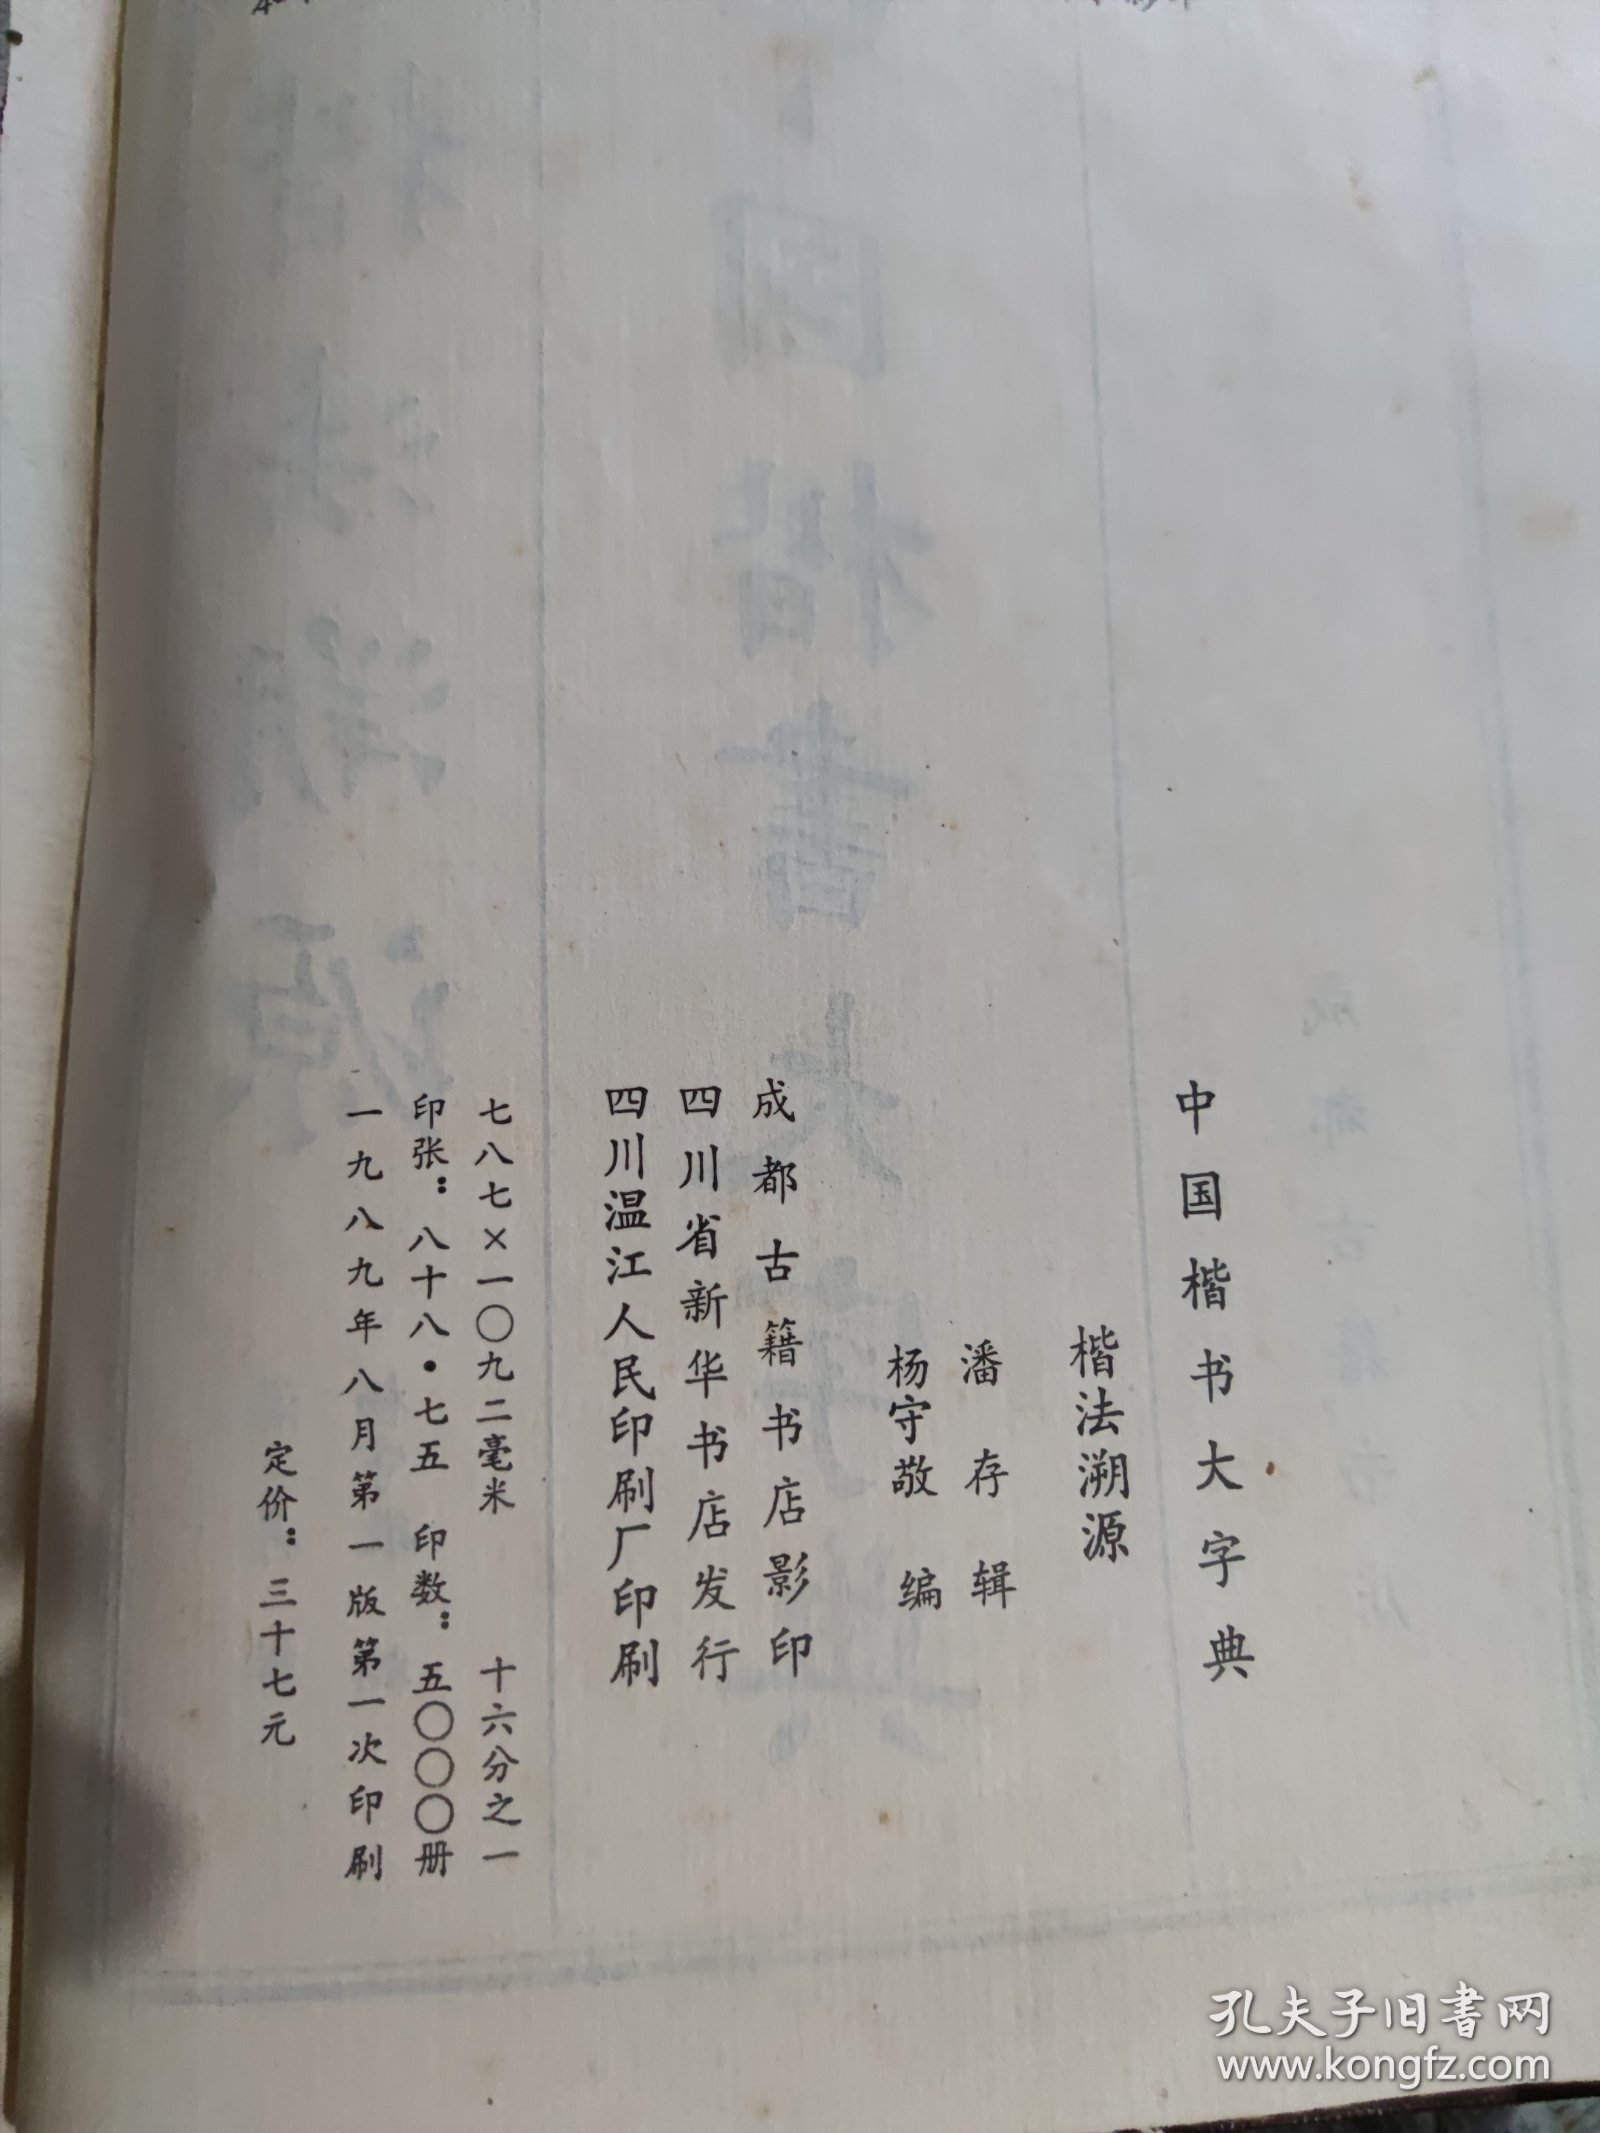 中国楷书大字典
楷法溯源
潘存辑
杨守敬编
成都古籍书店影印
四川省新华书店发行
四川温江人民印刷厂印刷
七八七×一〇九二毫米 十六分之一
印张：八十八·七五 印数：五〇〇〇册
一九八九年八月第一版第一次印刷
定价：三十七元
孔夫子旧书网
www.kongfz.com